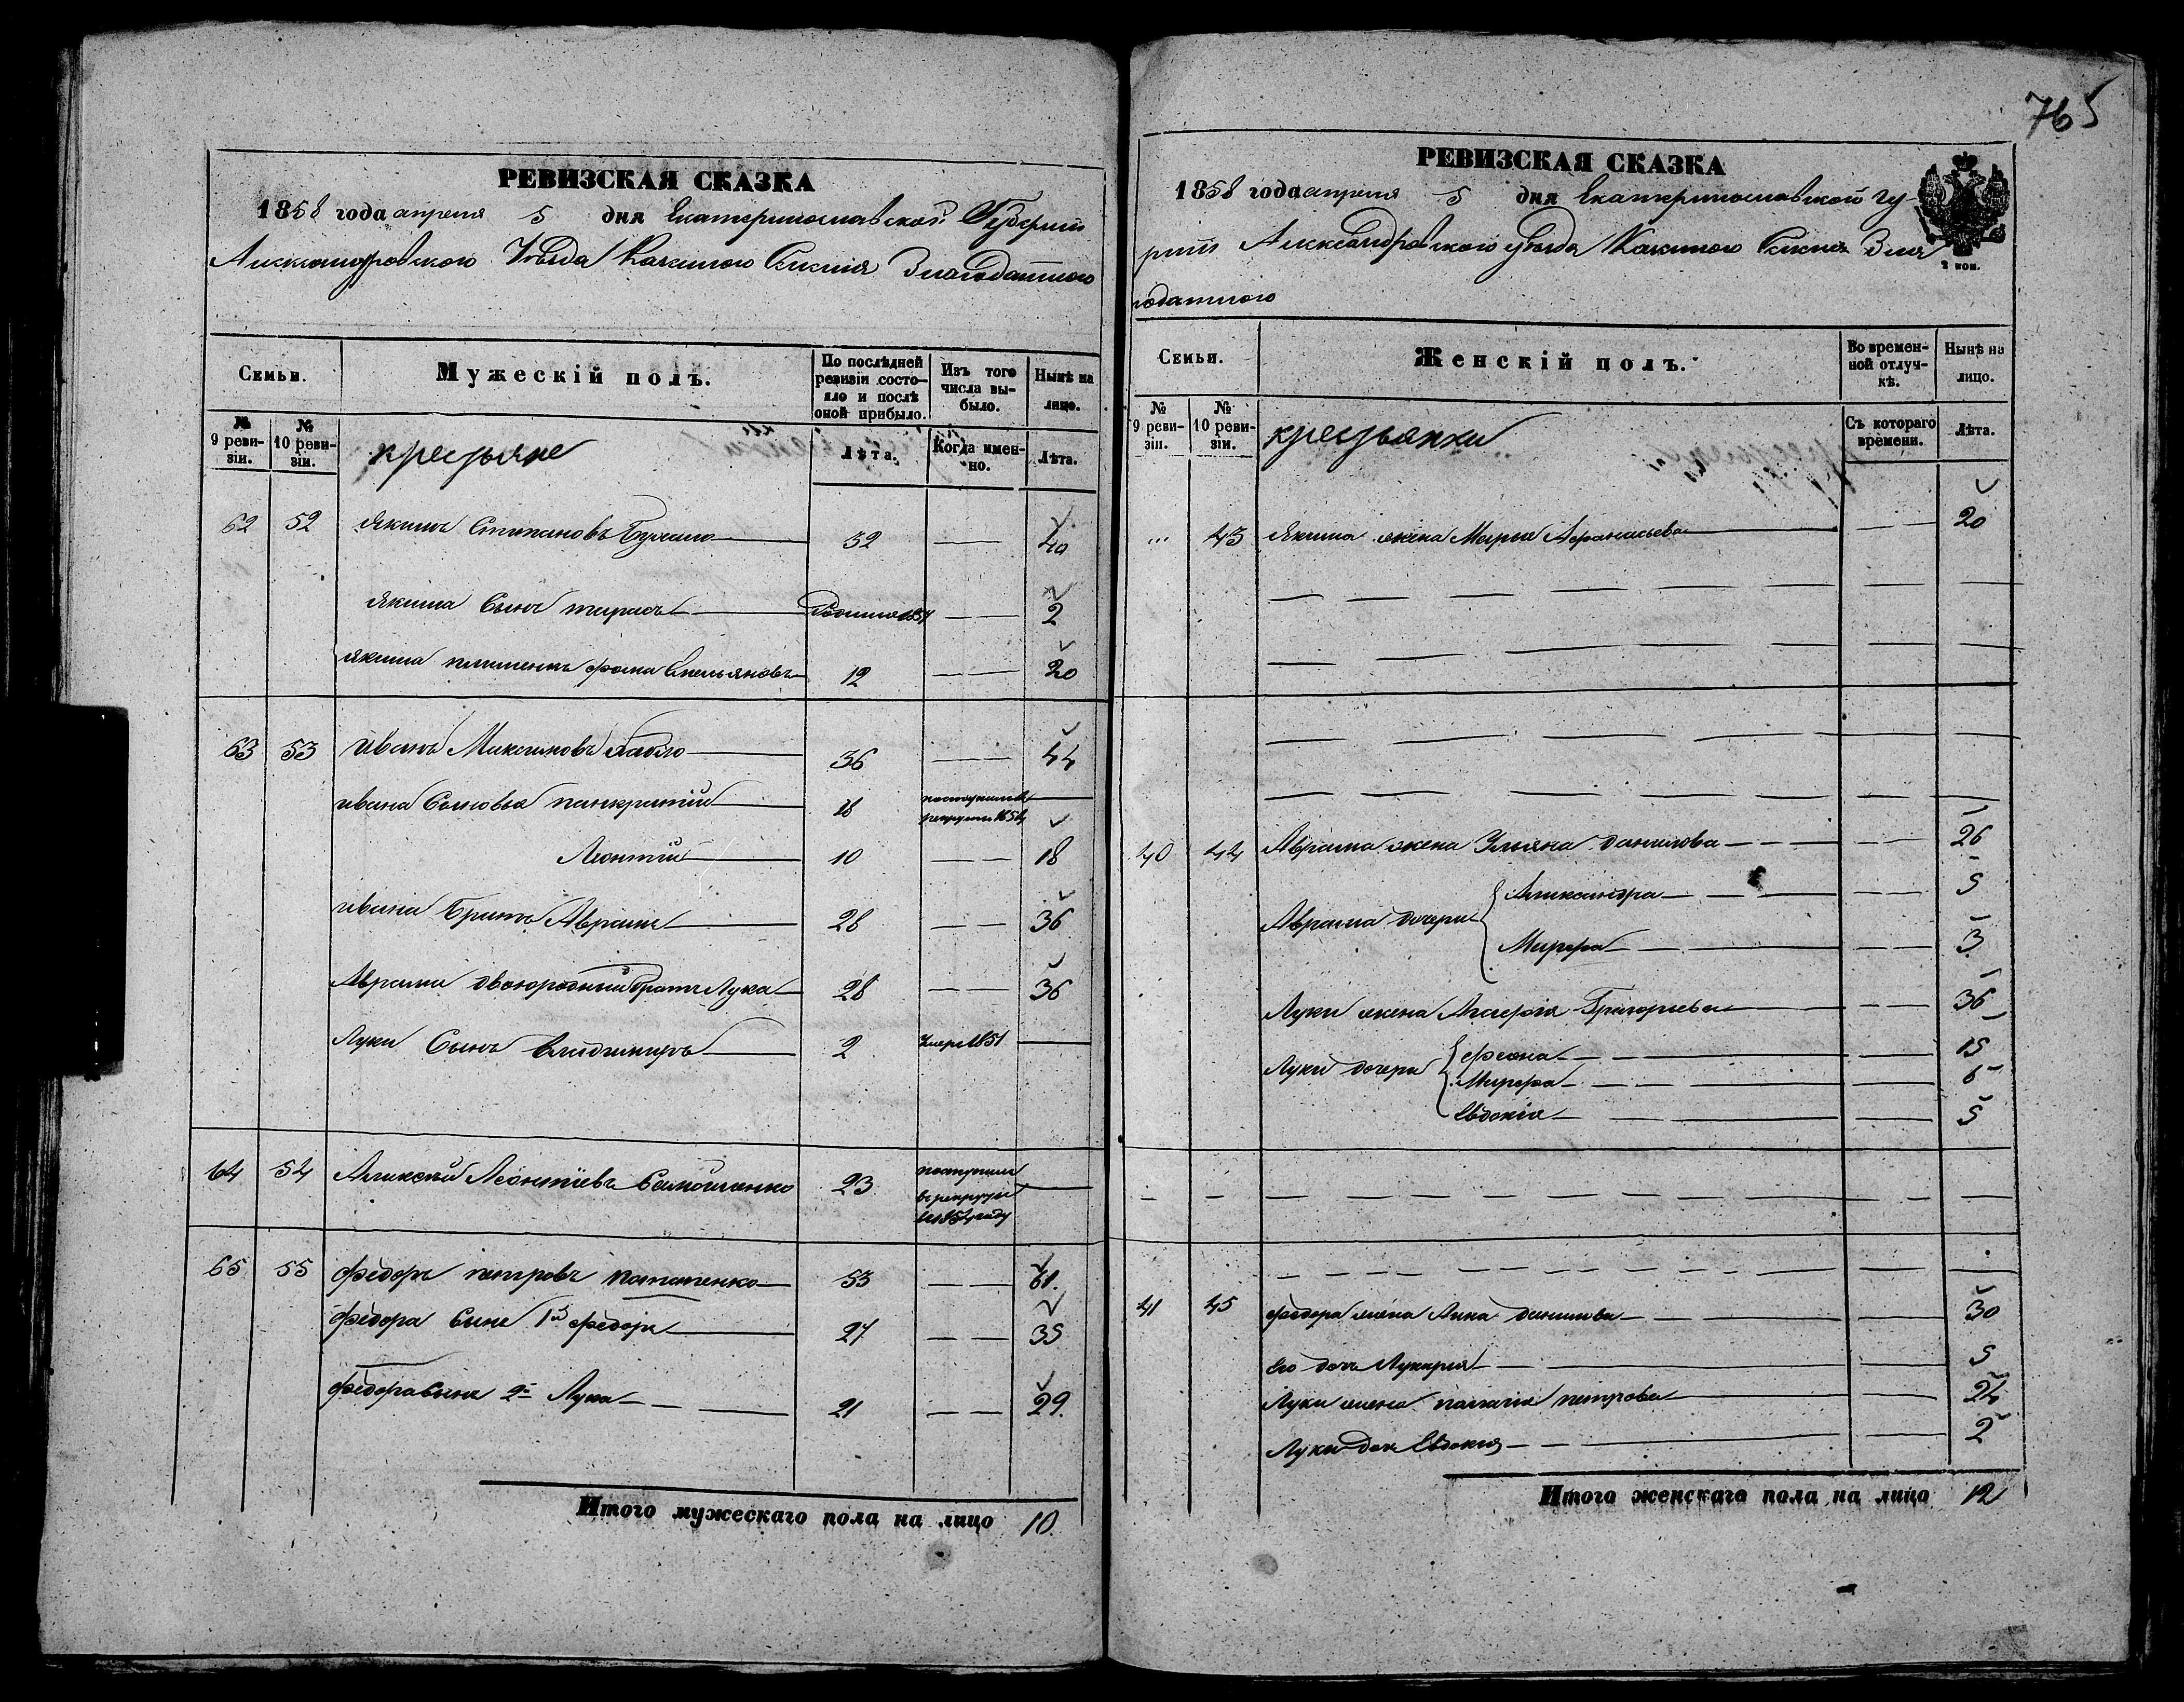 765
РЕВИЗСКАЯ СКАЗКА
1858 года апреля 5 дня Екатеринославской Губерніи
Александровского Уѣзда Казенного Селенія Благодатного
Семьи. Мужескій полъ. По послѣдней ревизіи состояло и послѣ оной прибыло. Изъ того числа выбыло. Нынѣ на лицо.
№ 9 ревизіи. № 10 ревизіи. крестьяне Лѣта. Когда именно. Лѣта.
62 52 Якимъ Степановъ 32 40
Якима Сынъ тарасъ 2
Якима племенникъ фома Емельяновъ 12 20
63 53 Иванъ Максимовъ 36 44
ивана Сыновья панкратій
Леонтій 10 18
ивана Братъ Аврамъ 28 36
Аврама двоюродный братъ Лука 28 36
Луки Сынъ Владимиръ 2 Умеръ 1851
64 54 Алексей Леонтіевъ 23 поступилъ в рекруты 1854 году
65 55 федоръ петровъ потапенко 53 61.
федора Сынъ 1й федоръ 27 35
федора Сынъ 2й Лука 21 29.
Итого мужескаго пола на лицо 10.
РЕВИЗСКАЯ СКАЗКА
1858 года апреля 5 дня Екатеринославской гу-
2 коп.
рніи Александровского уѣзда Казенного Селенія Бла
годатного
Семьи. Женскій полъ. Во временной отлучкѣ. Нынѣ на лицо.
№ 9 ревизіи. № 10 ревизіи. крестьянки Съ котораго времени. Лѣта.
43 Якима жена Марья Афанасьева 20
40 44 Аврама жена Ульяна данилова 26
Аврама дочери Александра 5
Марфа 3
Луки жена Агафія Григорьева 36
Луки дочери феона 15
Марфа 6
Евдокія 5
41 45 федора жена Анна данилова 30
Его дочь Лукерья 5
Луки жена палагія петрова 24
Луки дочь Евдокия 2
Итого женскаго пола на лицо 12